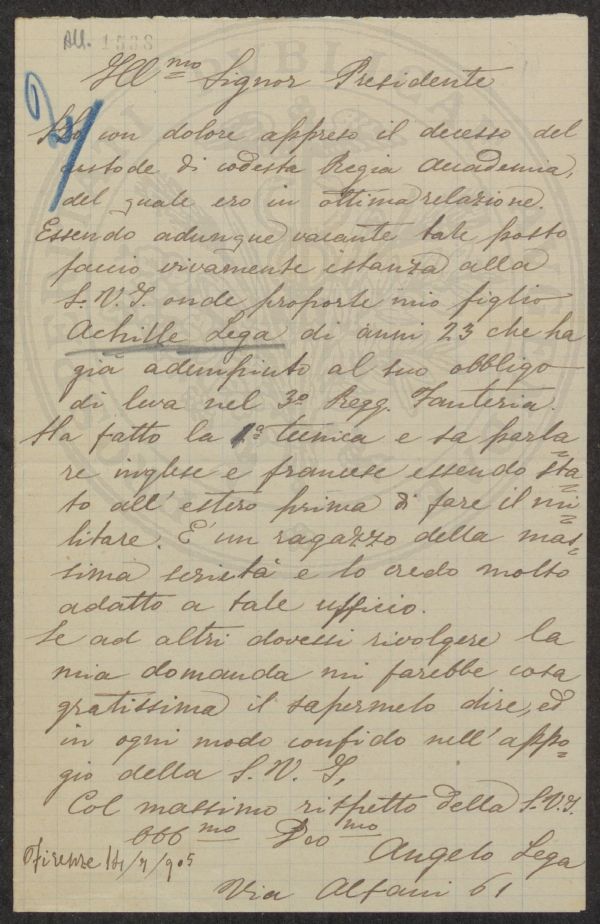 All. 1538
Ill mo Signor Presidente
Ho con dolore appreso il decesso del
custode di codesta Regia Accademia,
del quale ero in ottima relazione.
Essendo adunque vacante tale posto
faccio vivamente istanza alla
S. V. I. onde proporle mio figlio
Achille Lega di anni 23 che ha
già adempiuto al suo obbligo
di leva nel 3º Regg. Fanteria.
Ha fatto la 1ª tecnica e sa parla=
re inglese e francese essendo sta=
to all' estero prima di fare il mi=
litare. É un ragazzo della mas=
sima serietà e lo credo molto
adatto a tale ufficio.
Se ad altri dovessi rivolgere la
mia domanda mi farebbe cosa
gratissima il sapermelo dire, ed
in ogni modo confido nell' appo=
gio della S. V. I,
Col massimo rispetto della S.V.I.
Obb mo Dvo mo
Angelo Lega
Firenze 14/7/905
Via Alfani 61